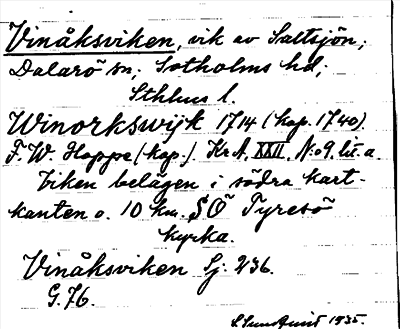 Vinåksviken, vik av Saltsjön;
Dalarö sn; Sotholms hd;
Sthlms l.
Winorkswijk 1714 (kop. 1740)
F. W. Hoppe (kop.). Kr A. XXII. N:o 9. lit. a.
Viken belägen i södra kart-
kanten o. 10 km. SÖ Tyresö
kyrka.
Vinåksviken Sj. 236.
G. 76.
S. Sundquist 1935.